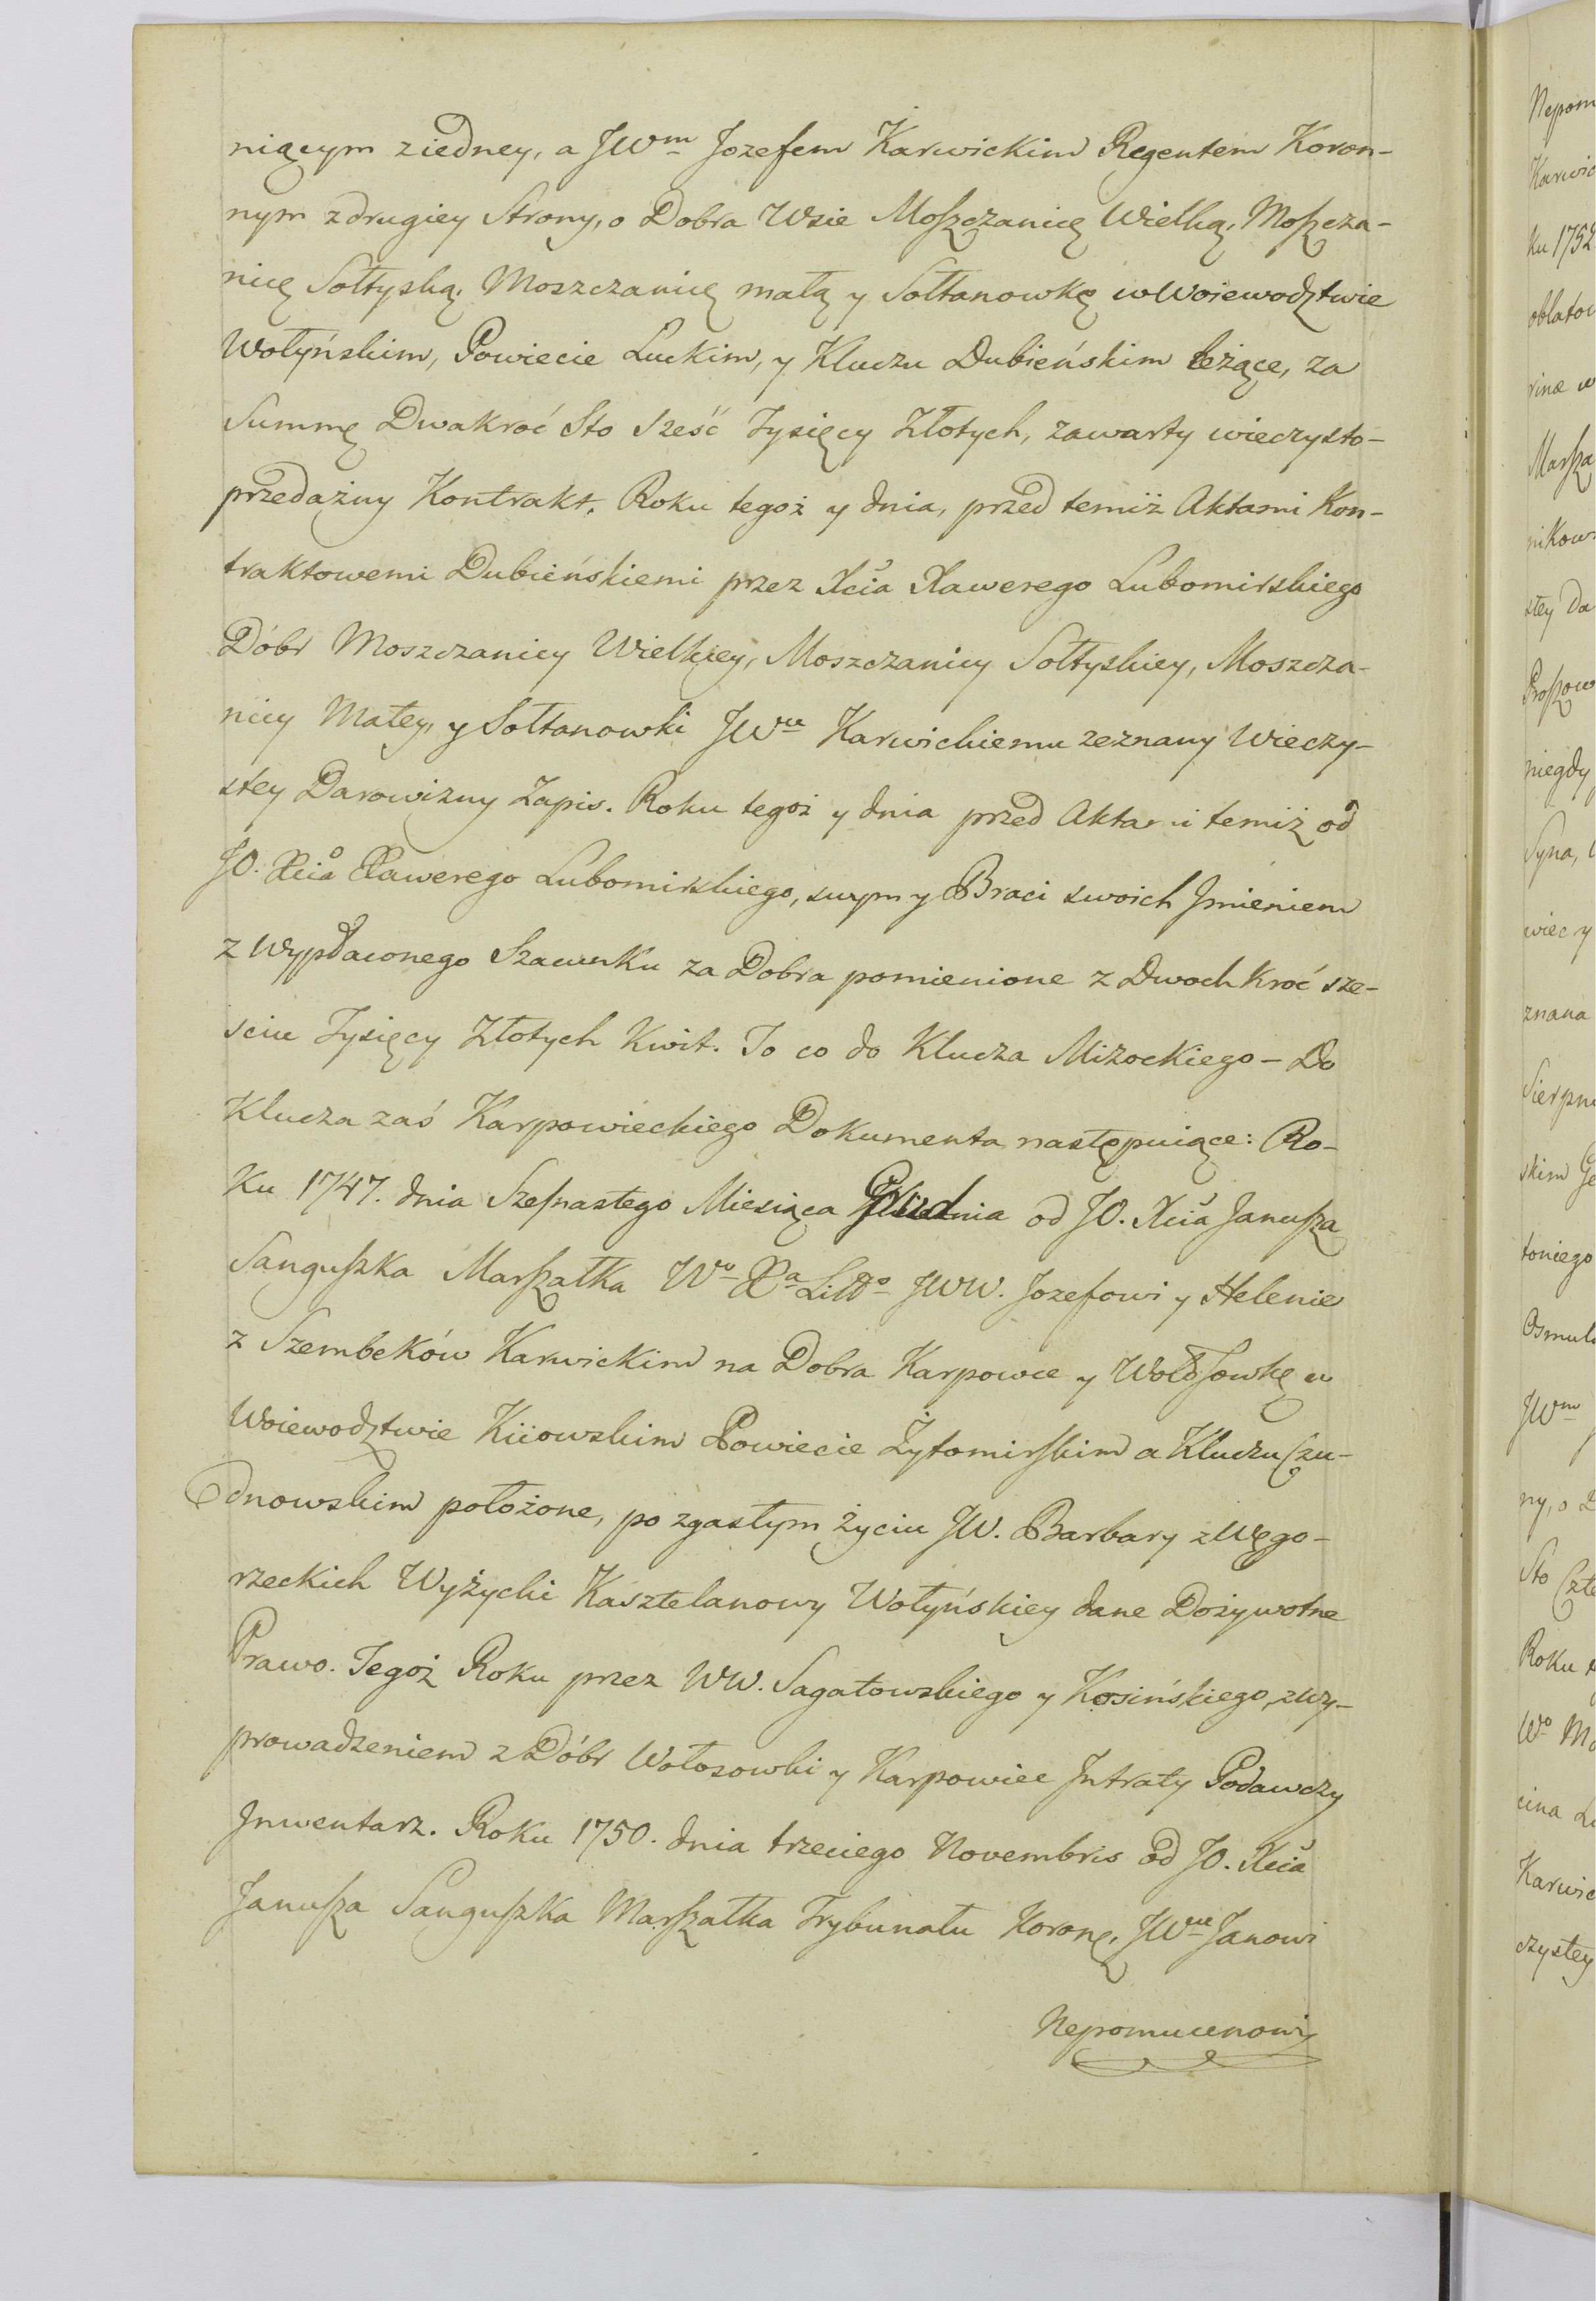 niącym ziedney, a JWm Jozefem Karwickim Regentem Koron-
nym zdrugiey Strony, o Dobra Wsie Moszczanicę Wielką, Moszcza-
nicę Sołtyską, Moszczanicę małą y Sołtanowkę w Woiewodztwie
Wołyńskim, Powiecie Łuckim, y Kluczu Dubieńskim leżące, za
Summę Dwakroć Sto Sześć Tysięcy Złotych, zawarty wieczysto-
przedażny Kontrakt. Roku tegoż y dnia, przed temiż Aktami Kon-
traktowemi Dubieńskiemi przez Xcia Xawerego Lubomirskiego
Dóbr Moszczanicy Wielkiey, Moszczanicy Sołtyskiey, Moszcza-
nicy Małey, y Sołtanowki JWu Karwickiemu zeznany Wieczy-
stey Darowizny Zapis. Roku tegoż y dnia przed Aktami temiż od
JO. Xcia Xawerego Lubomirskiego, swym y Braci swoich Jmieniem
z Wypłaconego Szacunku za Dobra pomienione z Dwoch kroć sze-
sciu Tysięcy Złotych Kwit. To co do Klucza Mizockiego – Do
Klucza zaś Karpowieckiego Dokumenta następuiące: Ro-
ku 1747. dnia Szesnastego Miesiąca Grudnia od JO. Xcia Janusza
Sanguszka Marszałka Wo Xa Litto JWW. Jozefowi y Helenie
z Szembeków Karwickim na Dobra Karpowce y Wołosowkę w
Woiewodztwie Kiiowskim Powiecie Żytomirskim a Kluczu Czu-
dnowskim położone, po zgasłym życiu JW. Barbary z Węgo-
rzeckich Wyżycki Kasztelanowy Wołyńskiey dane Dożywotne
Prawo. Tegoż Roku przez WW. Sagatowskiego y Kosińskiego, zwy-
prowadzeniem z Dóbr Wołosowki y Karpowiec Jntraty Podawczy
Jnwentarz. Roku 1750. dnia trzeciego Novembris od JO. Xcia
Janusza Sanguszka Marszałka Trybunału Koronę, JWu Janowi
Nepomucenowi
Nepom
Karwic
ku 1752
oblatow
rinæ w
Marsza
nikows
stey Da
Proszow
niegdy
Syna,
wiec y
znana
Sierpn
skim
toniego
Osmul
JWm
ny, o
Sto Czte
Roku
Wo
cina
Karwic
czystey